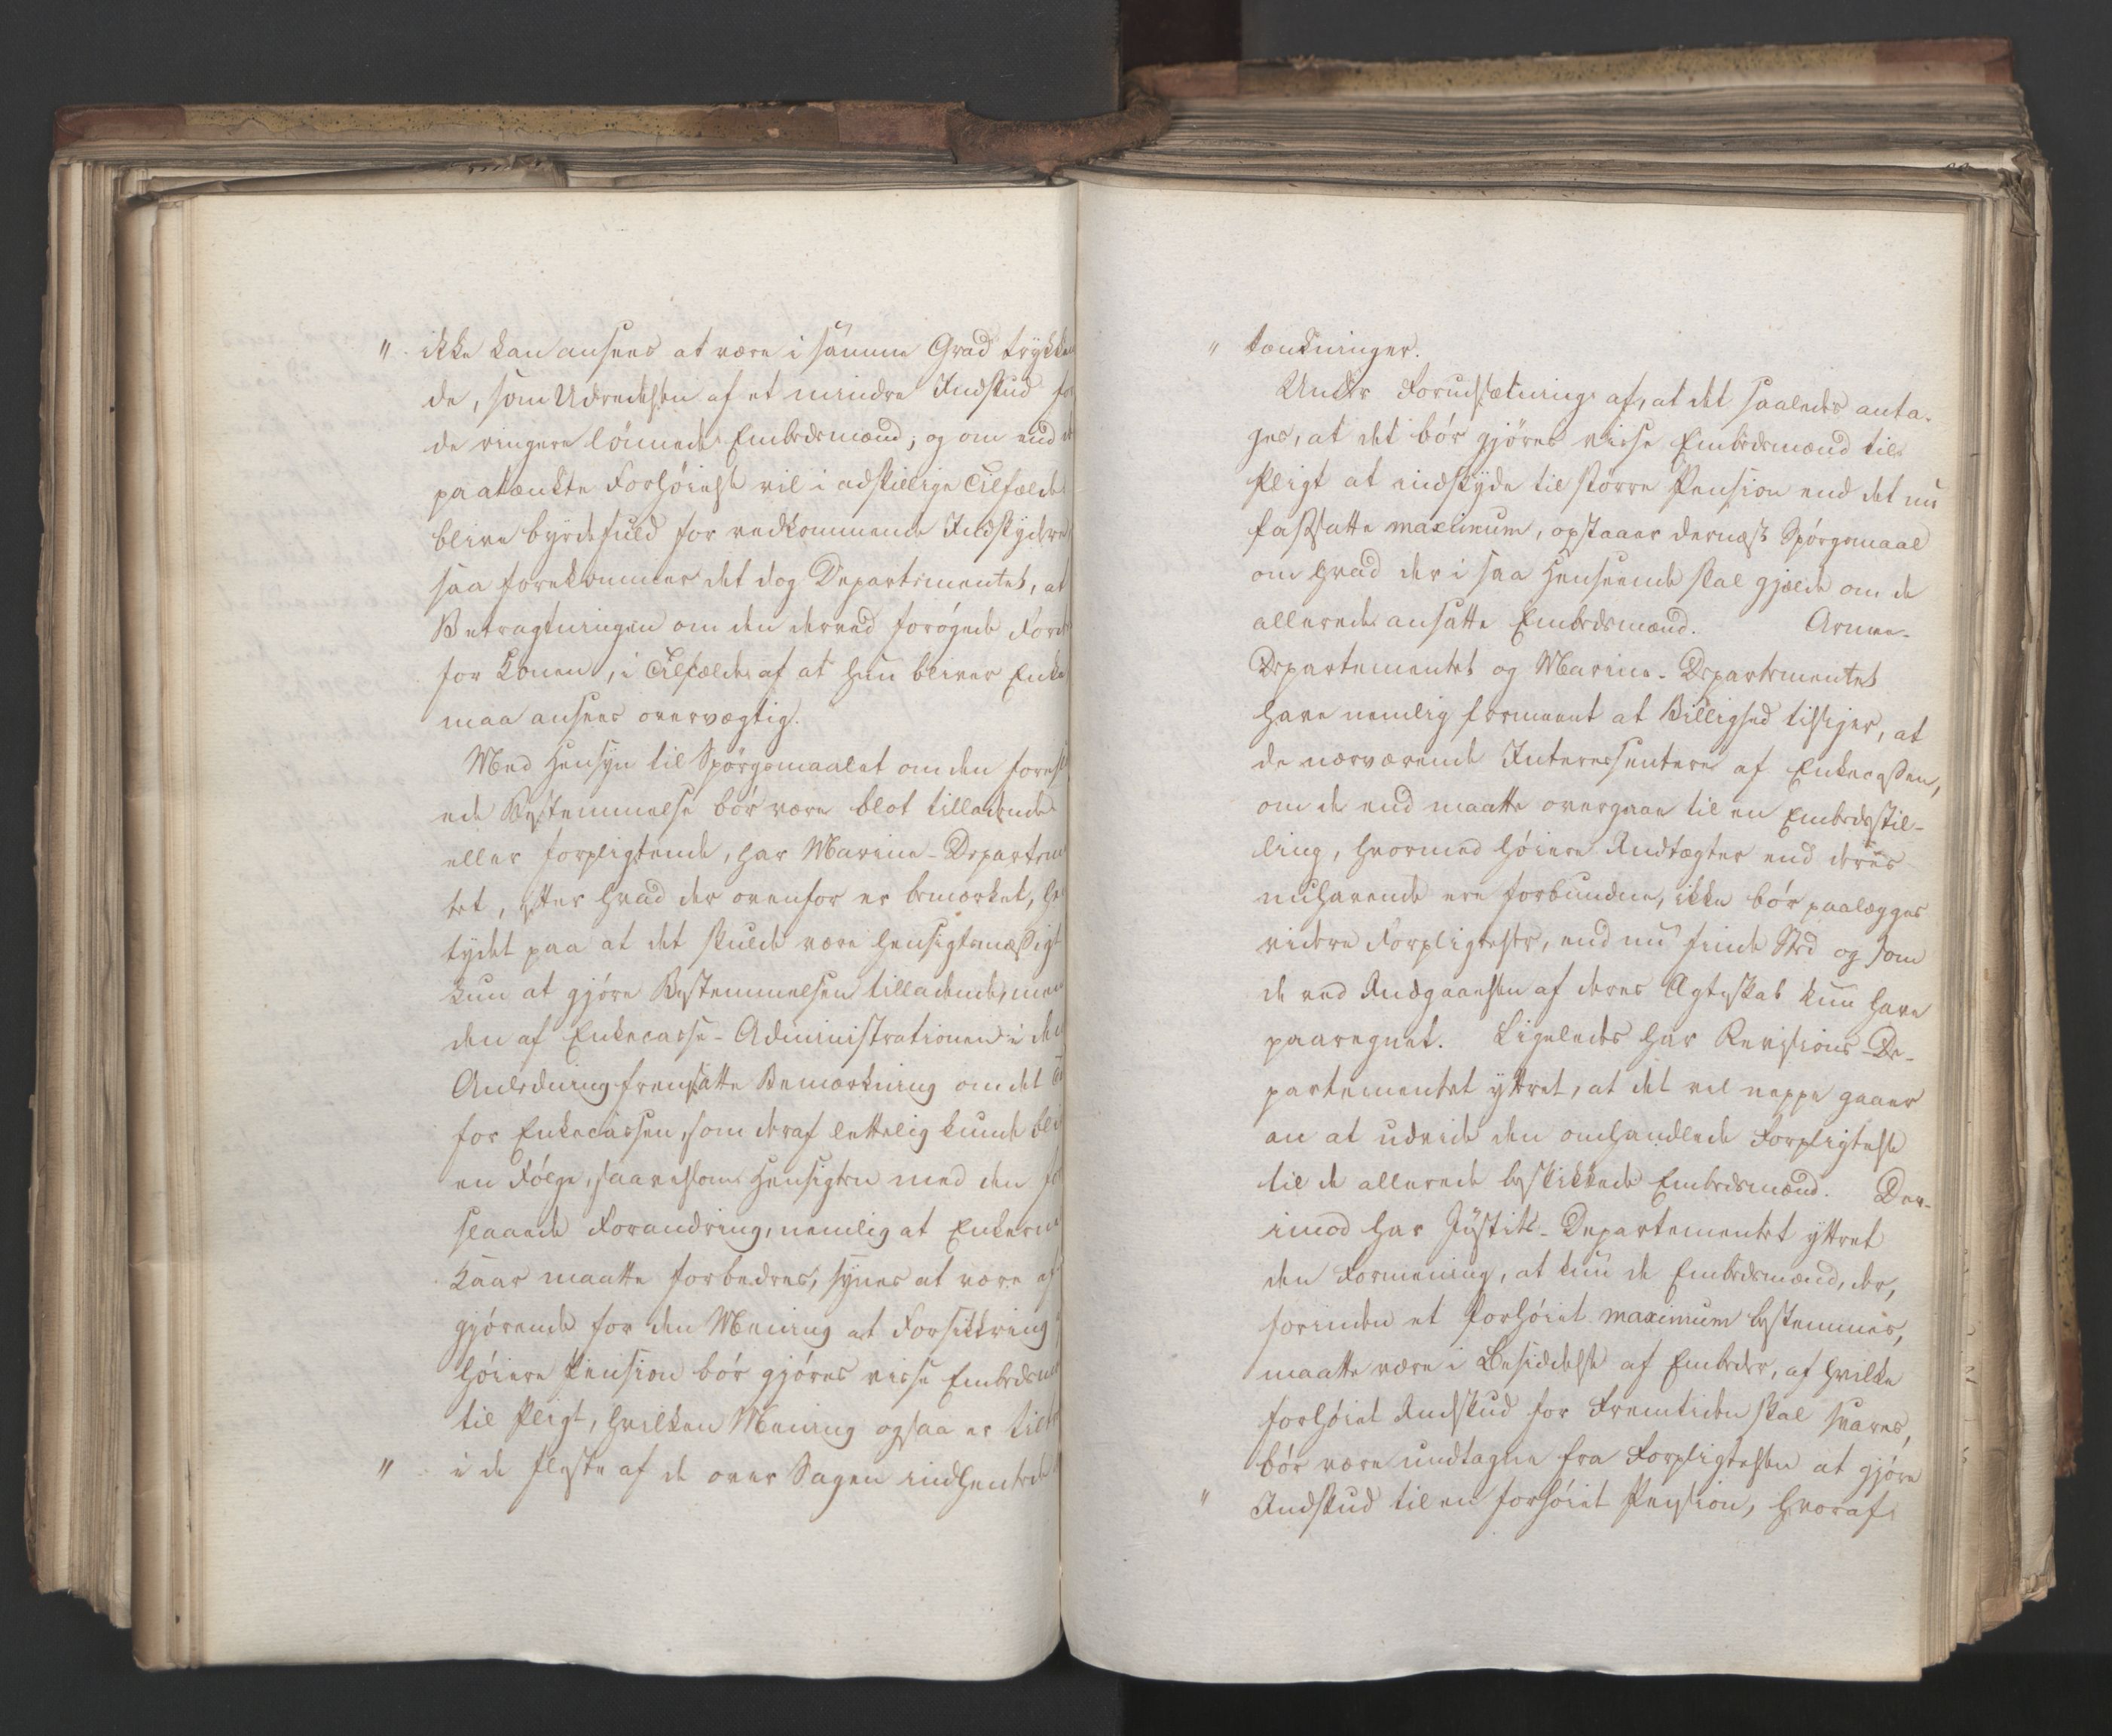 " ikke kan ansees at være i samme Grad trykken
de, som Udredelsen af et mindre Indskud for
de ringere lønnede Embedsmænd; og om end
paatænkte Forhøielse vil i adskillige Tilfælde
blive byrdefuld for vedkommende Indskydere
saa forekommer det dog Departementet, at
Betragtningen om den derved forøgede Ford
for Konen, i Tilfælde af at hun bliver Enke
maa ansees overvægtig.
Med Hensyn til Spørgsmaalet om den foresl
ede Bestemmelse bør være blot tilladende
eller forpligtende, har Marine-Departemen
tet, efter hvad der ovenfor er bemærket, hen
tydet paa at det skulde være hensigtsmæssigt
kun at gjøre Bestemmelsen tilladende, men
den af Enkecasse-Administrationen i den
Anledning fremsatte Bemærkning om det
for Enkecassen, som deraf lettelig kunde bli
en Følge, saavelsom Hensigten med den for
slaaede Forandring, nemlig at Enkernes
Kaar maatte forbedres, synes at være af
gjørende for den Mening at Forsikkring
høiere Pension bør gjøres visse Embedsmæ
til Pligt, hvilken Mening ogsaa er tilt
" i de fleste af de over Sagen indhentede
" tænkninger.
Under Forudsætning af, at det saaledes anta-
ges, at det bør gjøres visse Embedsmænd til
Pligt at indskyde til større Pension end det nu
fastsatte maximum, opstaaer dernæst Spørgsmaal
om hvad der i saa Henseende skal gjælde om de
allerede ansatte Embedsmænd. Armee-
Departementet og Marine-Departementet
have nemlig formeent at Billighed tilsiger, at
de nærværende Interessentere af Enkecassen,
om de end maatte overgaae til en Embedsstil-
ling, hvormed høiere Indtægter end deres
nuhavende ere forbundne, ikke bør paalægges
videre Forpligtelser, end nu finde Sted og som
de ved Indgaaelsen af deres Ægteskab kun have
paaregnet. Ligeledes har Revisions-De-
partementet yttret, at det vel neppe gaaer
an at udvide den omhandlede Forpligtelse
til de allerede beskikkede Embedsmænd. Der-
imod har Justits-Departementet yttret
den Formening, at kun de Embedsmænd, der,
forinden et forhøiet maximum bestemmes,
maatte være i Besiddelse af Embeder, af hvilke
forhøiet Indskud for Fremtiden skal svares,
bør være undtagne fra Forpligtelsen at gjøre
" Indskud til en forhøiet Pension, hvoraf